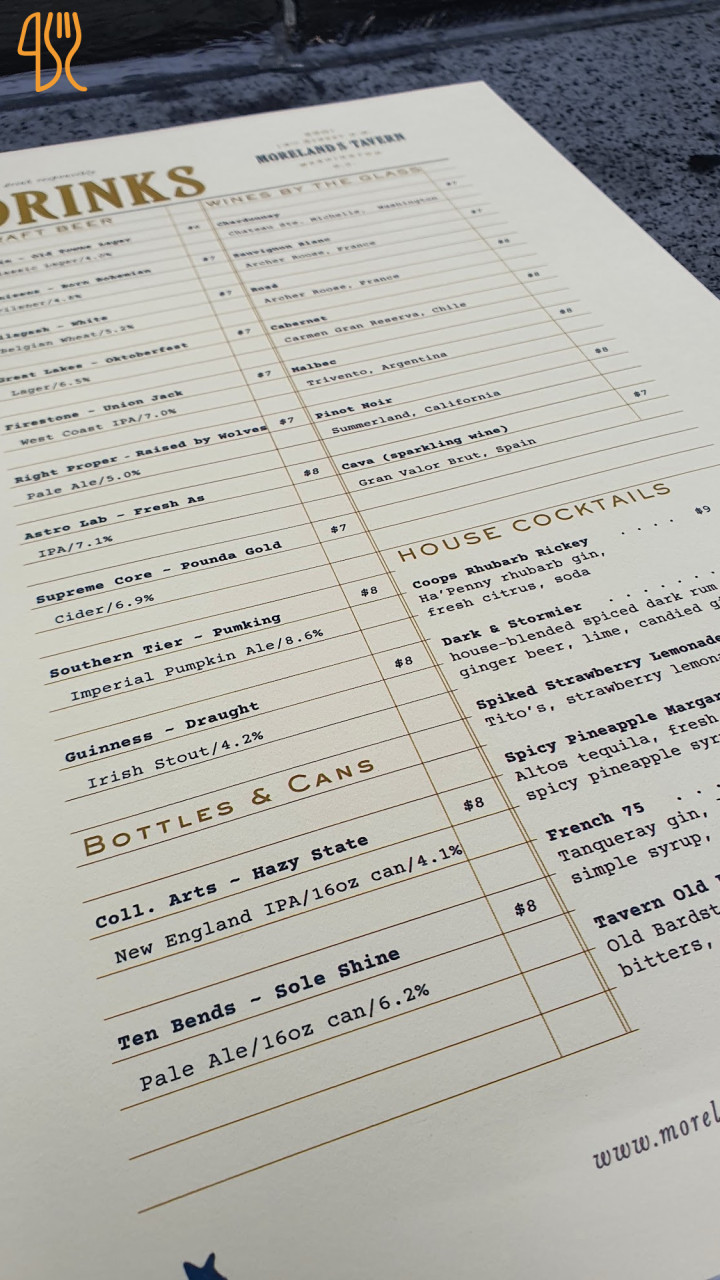 drink responsibly
MORELAND'S TAVERN
WASHINGTON
DRINKS
CRAFT BEER
Old Towne Lager $6
Classic Lager/4.0%
Born Bohemian $7
Pilsner/4.8%
Allagash ~ White $7
Belgian Wheat/5.2%
Great Lakes ~ Oktoberfest $7
Lager/6.5%
Firestone ~ Union Jack $7
West Coast IPA/7.0%
Right Proper ~ Raised by Wolves $7
Pale Ale/5.0%
Astro Lab ~ Fresh As $8
IPA/7.1%
Supreme Core ~ Pounda Gold $7
Cider/6.9%
Southern Tier ~ Pumking $8
Imperial Pumpkin Ale/8.6%
Guinness ~ Draught $8
Irish Stout/4.2%
BOTTLES & CANS
Coll. Arts ~ Hazy State $8
New England IPA/16oz can/4.1%
Ten Bends ~ Sole Shine $8
Pale Ale/16oz can/6.2%
WINES BY THE GLASS
Chardonnay $7
Chateau Ste. Michelle, Washington
Sauvignon Blanc $7
Archer Roose, France
Rosé $8
Archer Roose, France
Cabernet $8
Carmen Gran Reserva, Chile
Malbec $8
Trivento, Argentina
Pinot Noir $8
Summerland, California
Cava (sparkling wine) $7
Gran Valor Brut, Spain
HOUSE COCKTAILS
Coops Rhubarb Rickey . . . . $9
Ha'Penny rhubarb gin,
fresh citrus, soda
Dark & Stormier . . . . . . .
house-blended spiced dark rum
ginger beer, lime, candied gi
Spiked Strawberry Lemonade
Tito's, strawberry lemona
Spicy Pineapple Margar
Altos tequila, fresh
spicy pineapple syr
French 75 . . .
Tanqueray gin,
simple syrup,
Tavern Old
Old Bardst
bitters,
www.morel